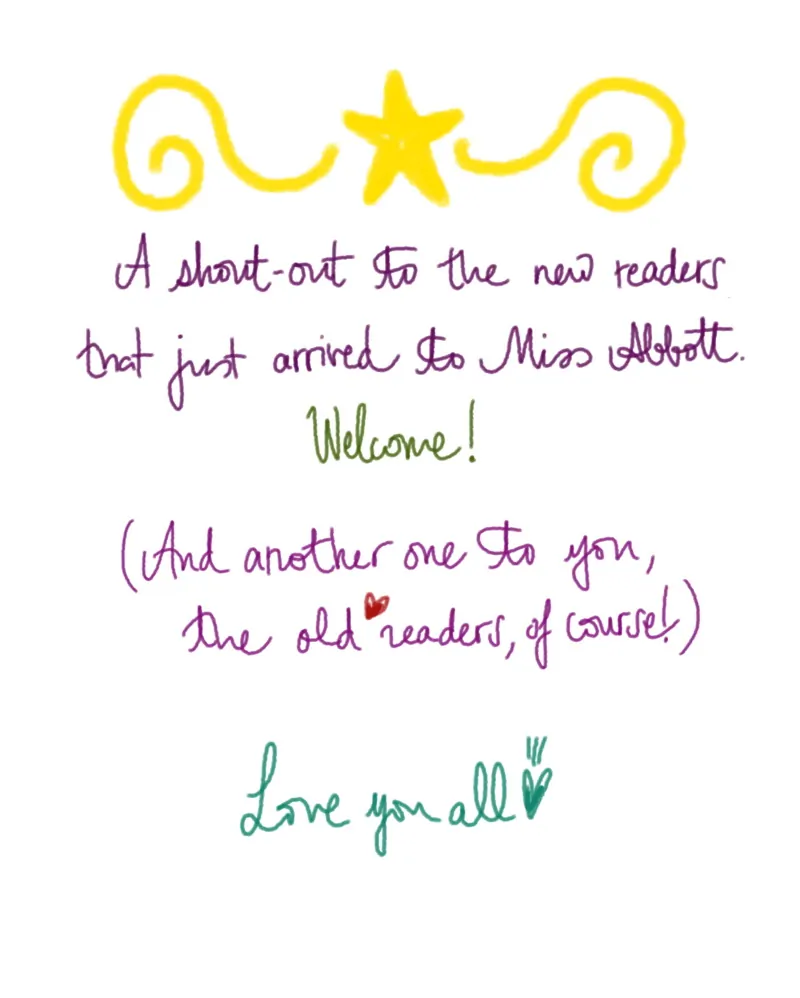 A shout-out to the new readers
that just arrived to Miss Abbott.
Welcome!
(And another one to you,
the old readers, of course!)
Love you all!!!